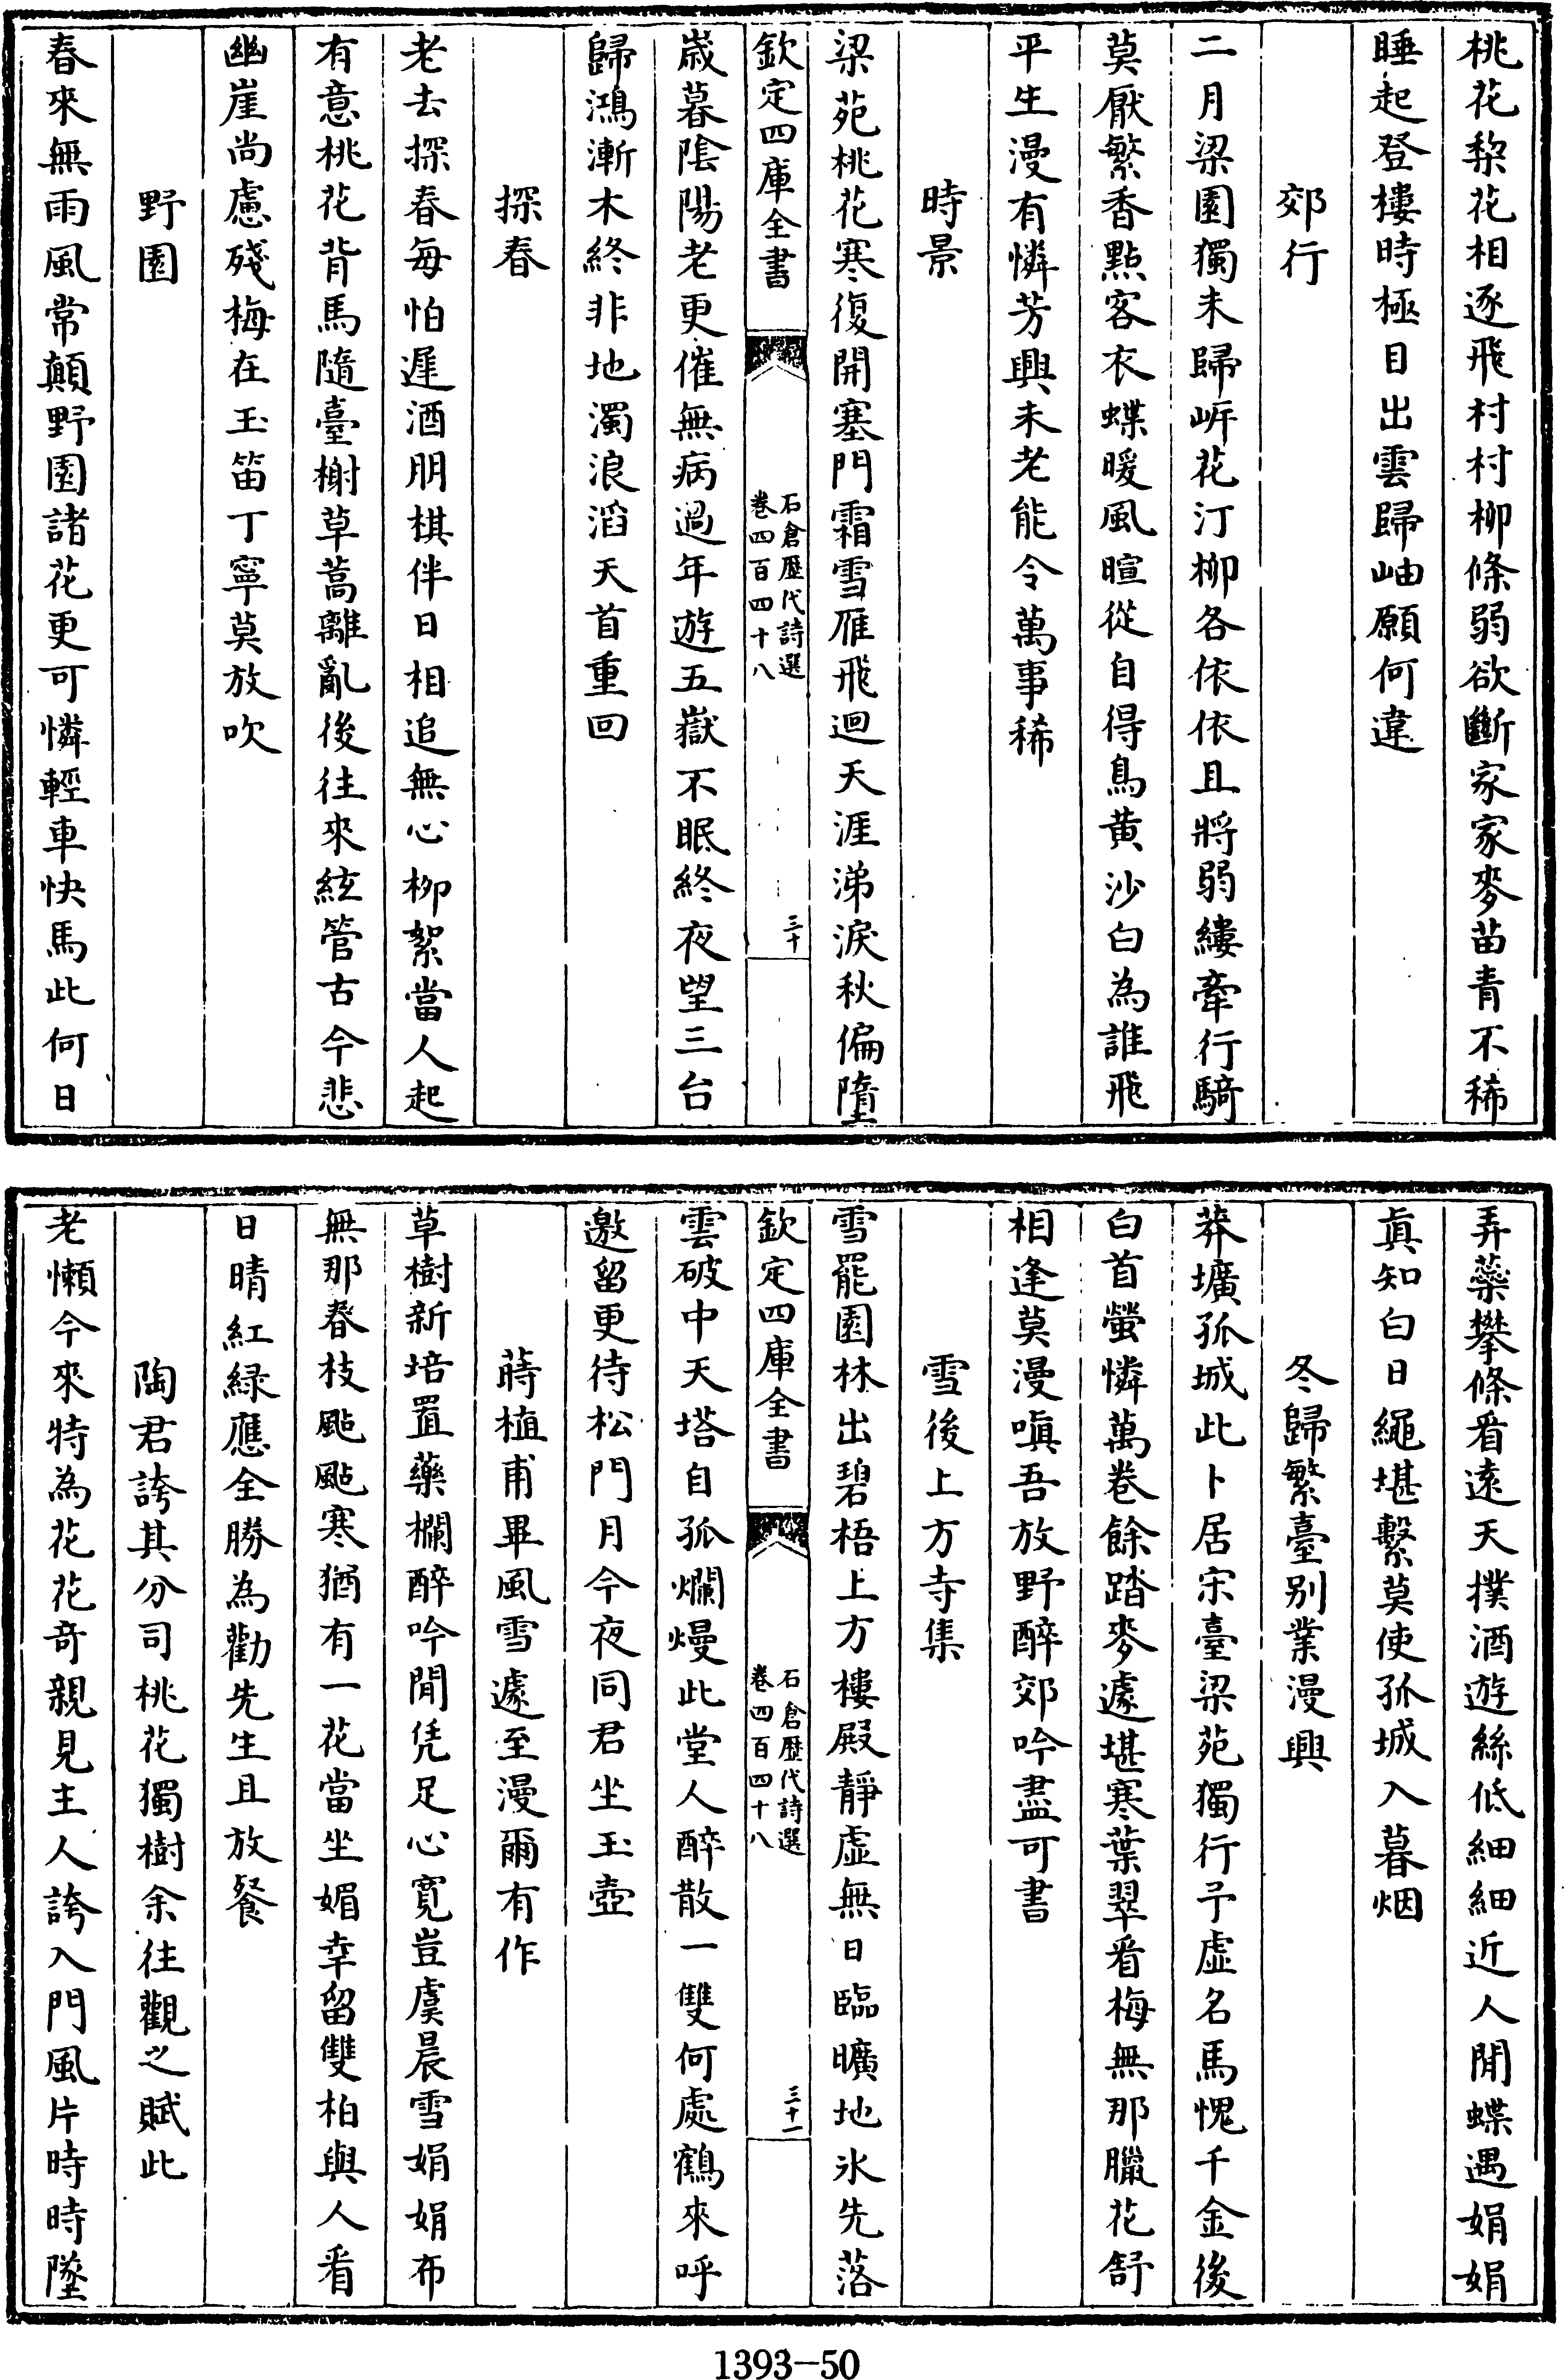 桃花棃花相逐飛村村柳條弱欲斷家家麥苗青不稀
睡起登樓時極目出雲歸岫願何違
郊行
二月梁園獨未歸㟁花汀柳各依依且將弱縷牽行騎
莫厭繁香㸃客衣蝶暖風暄從自得鳥黄沙白為誰飛
平生漫有憐芳興未老能令萬事稀
時景
梁苑桃花寒復開塞門霜雪雁飛迴天涯涕淚秋偏墮
欽定四庫全書
石倉歴代詩選
卷四百四十八
三十
嵗暮陰陽老更催無病過年遊五嶽不眠終夜望三台
歸鴻漸木終非地濁浪滔天首重回
探春
老去探春每怕遲酒朋棋伴日相追無心柳絮當人起
有意桃花背馬隨臺榭草蒿離亂後往來絃管古今悲
幽崖尚慮殘梅在玉笛丁寧莫放吹
野園
春來無雨風常顛野園諸花更可憐輕車快馬此何日
弄蘂攀條看遠天撲酒遊絲低細細近人閒蝶遇娟娟
眞知白日繩堪繫莫使孤城入暮烟
冬歸繁臺别業漫興
莽壙孤城此卜居宋臺梁苑獨行予虚名馬愧千金後
白首螢憐萬卷餘踏麥遽堪寒葉翠看梅無那臘花舒
相逢莫漫嗔吾放野醉郊吟盡可書
雪後上方寺集
雪罷園林出碧梧上方樓殿靜虚無日臨曠地氷先落
欽定四庫全書
石倉歴代詩選
卷四百四十八
三十一
雲破中天塔自孤爛熳此堂人醉散一雙何處鶴來呼
邀留更待松門月今夜同君坐玉壺
蒔植甫畢風雪遽至漫爾有作
草樹新培置藥欄醉吟閒凭足心寛豈虞晨雪娟娟布
無那春枝颭颭寒猶有一花當坐媚幸留雙柏與人看
日晴紅緑應全勝為勸先生且放餐
陶君誇其分司桃花獨樹余往觀之賦此
老懶今來特為花花奇親見主人誇入門風片時時墜
1393-50